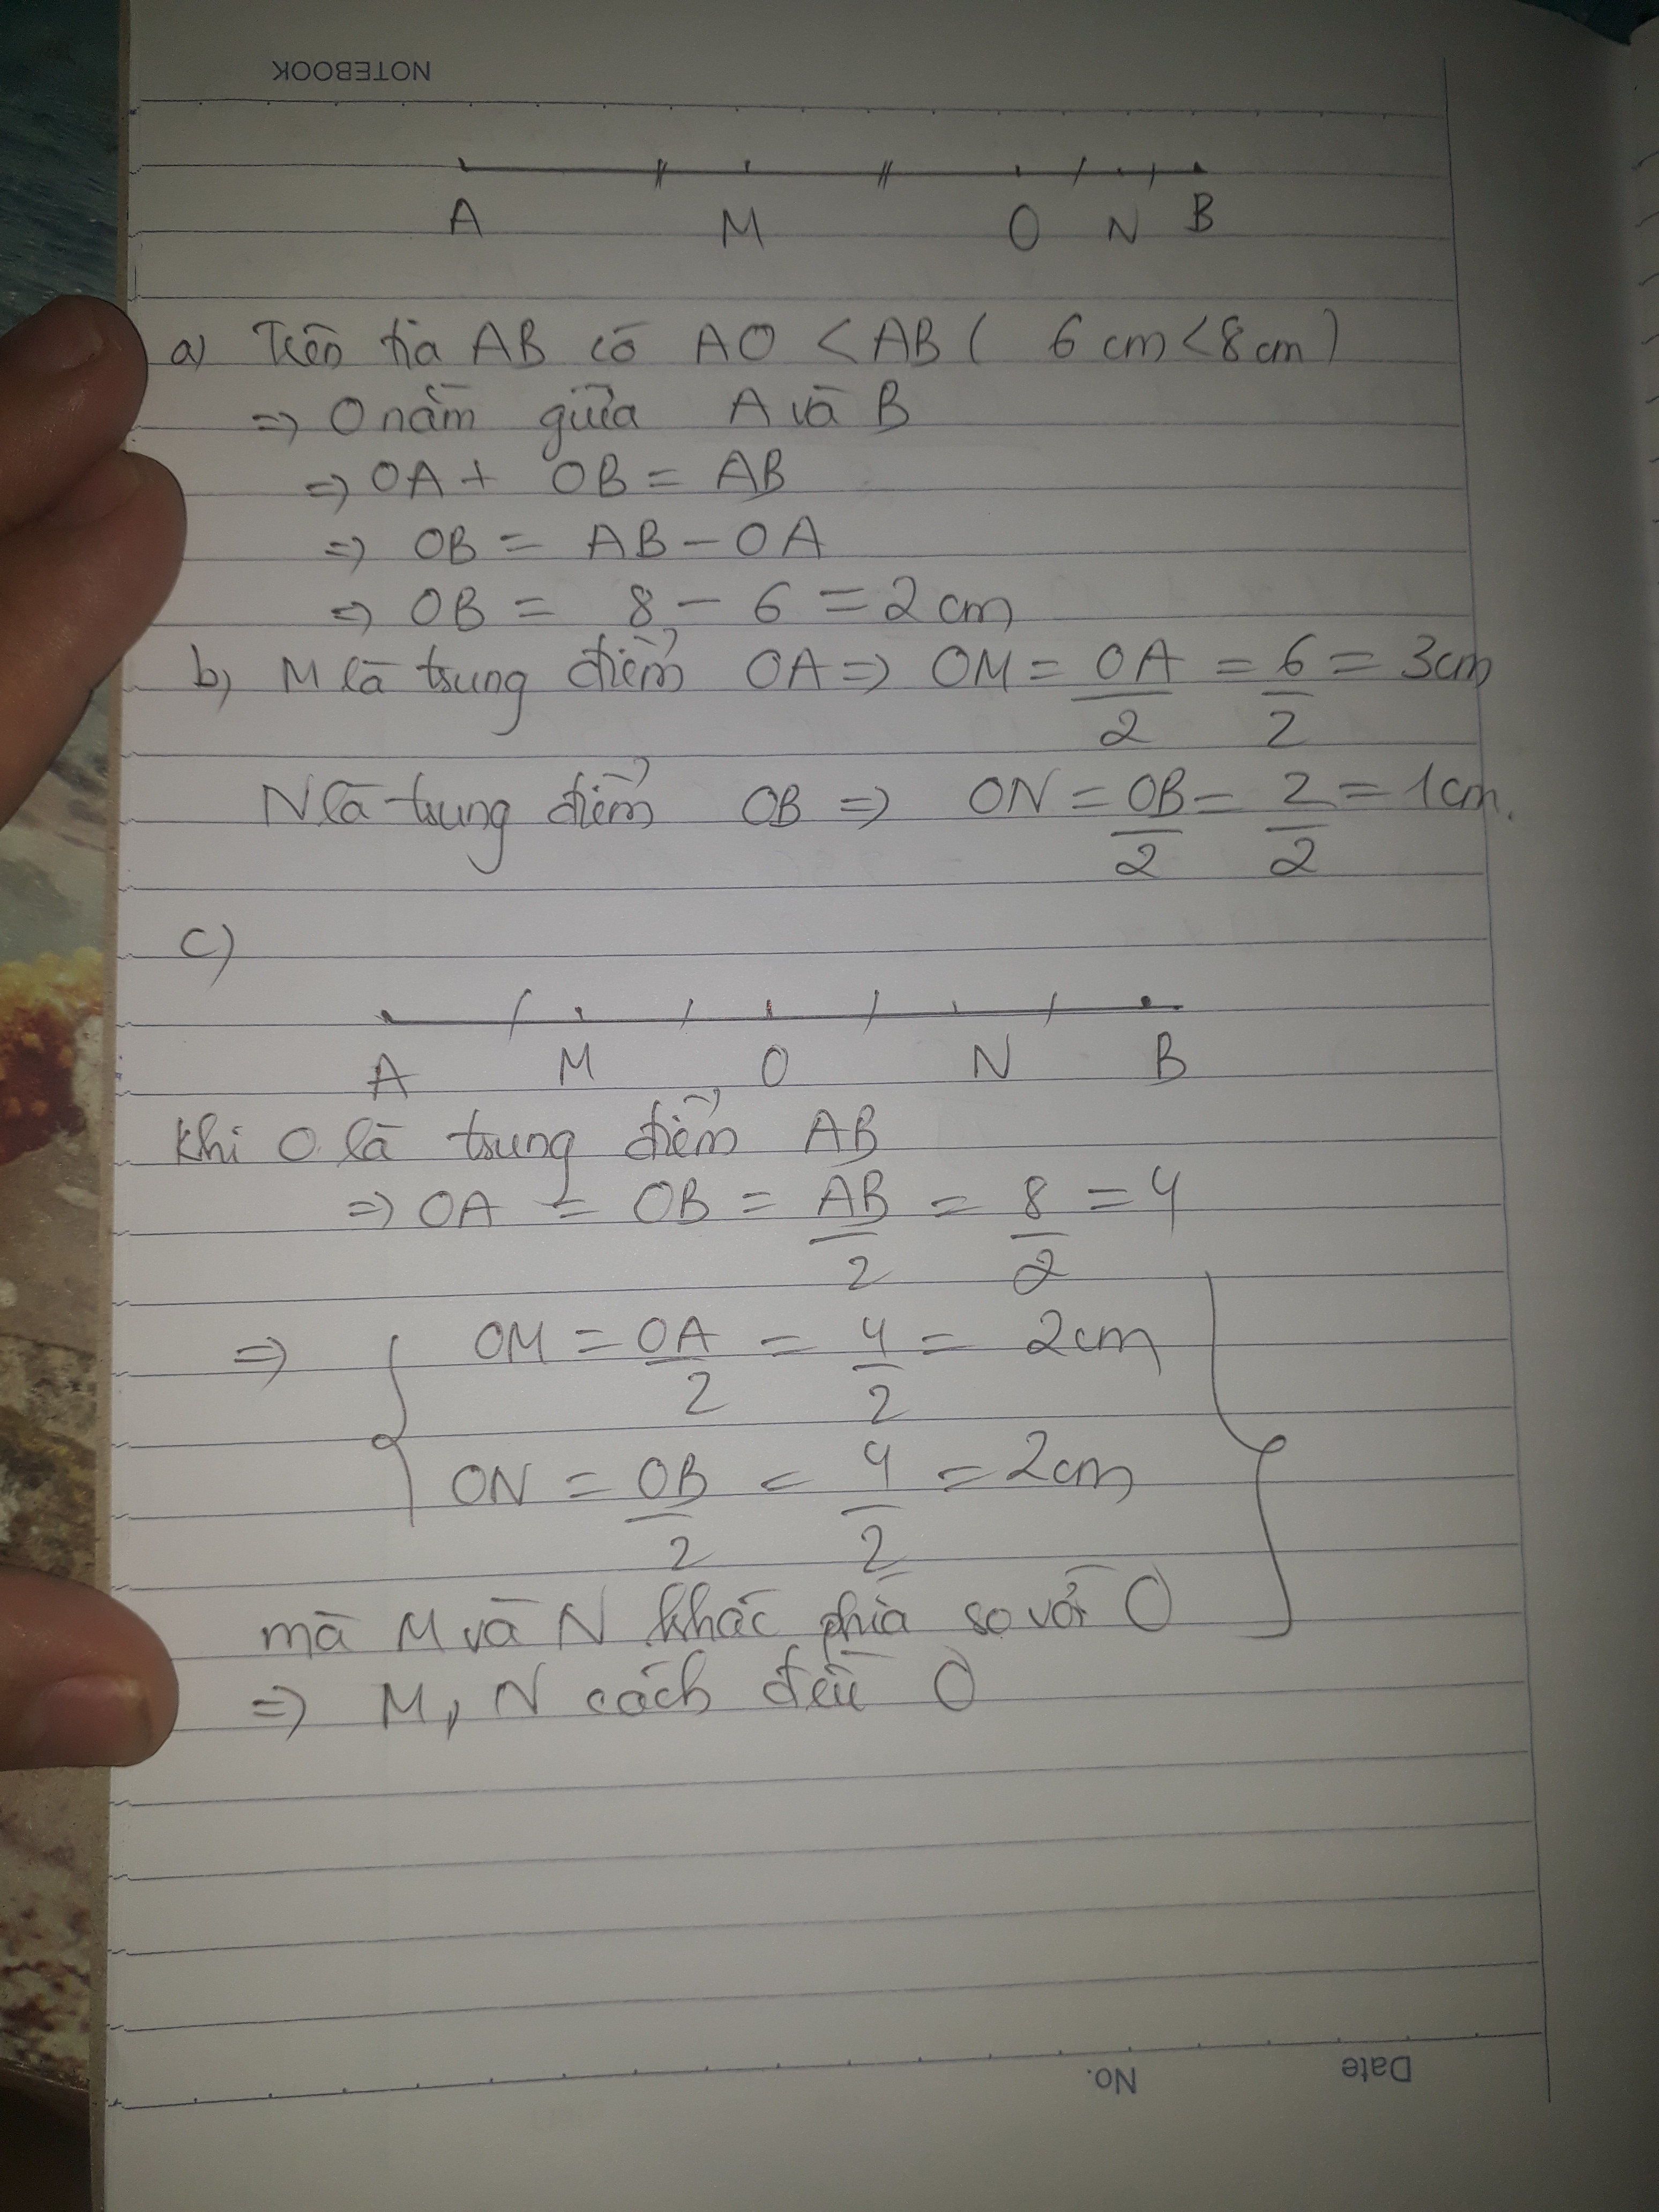 NOTEBOOK
A M O N B
a) Trên tia AB có AO < AB ( 6 cm < 8 cm )
=> O nằm giữa A và B
=> OA + OB = AB
=> OB = AB - OA
=> OB = 8 - 6 = 2 cm
b) M là trung điểm OA => OM = OA/2 = 6/2 = 3cm
N là trung điểm OB => ON = OB/2 = 2/2 = 1cm.
c)
A M O N B
Khi O là trung điểm AB
=> OA = OB = AB/2 = 8/2 = 4
=> { OM = OA/2 = 4/2 = 2cm
ON = OB/2 = 4/2 = 2cm
mà M và N khác phía so với O }
=> M, N cách đều O
No. Date